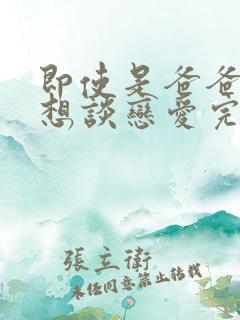 即使是爸爸
想談戀愛完
張立衛
未經同意禁止轉載